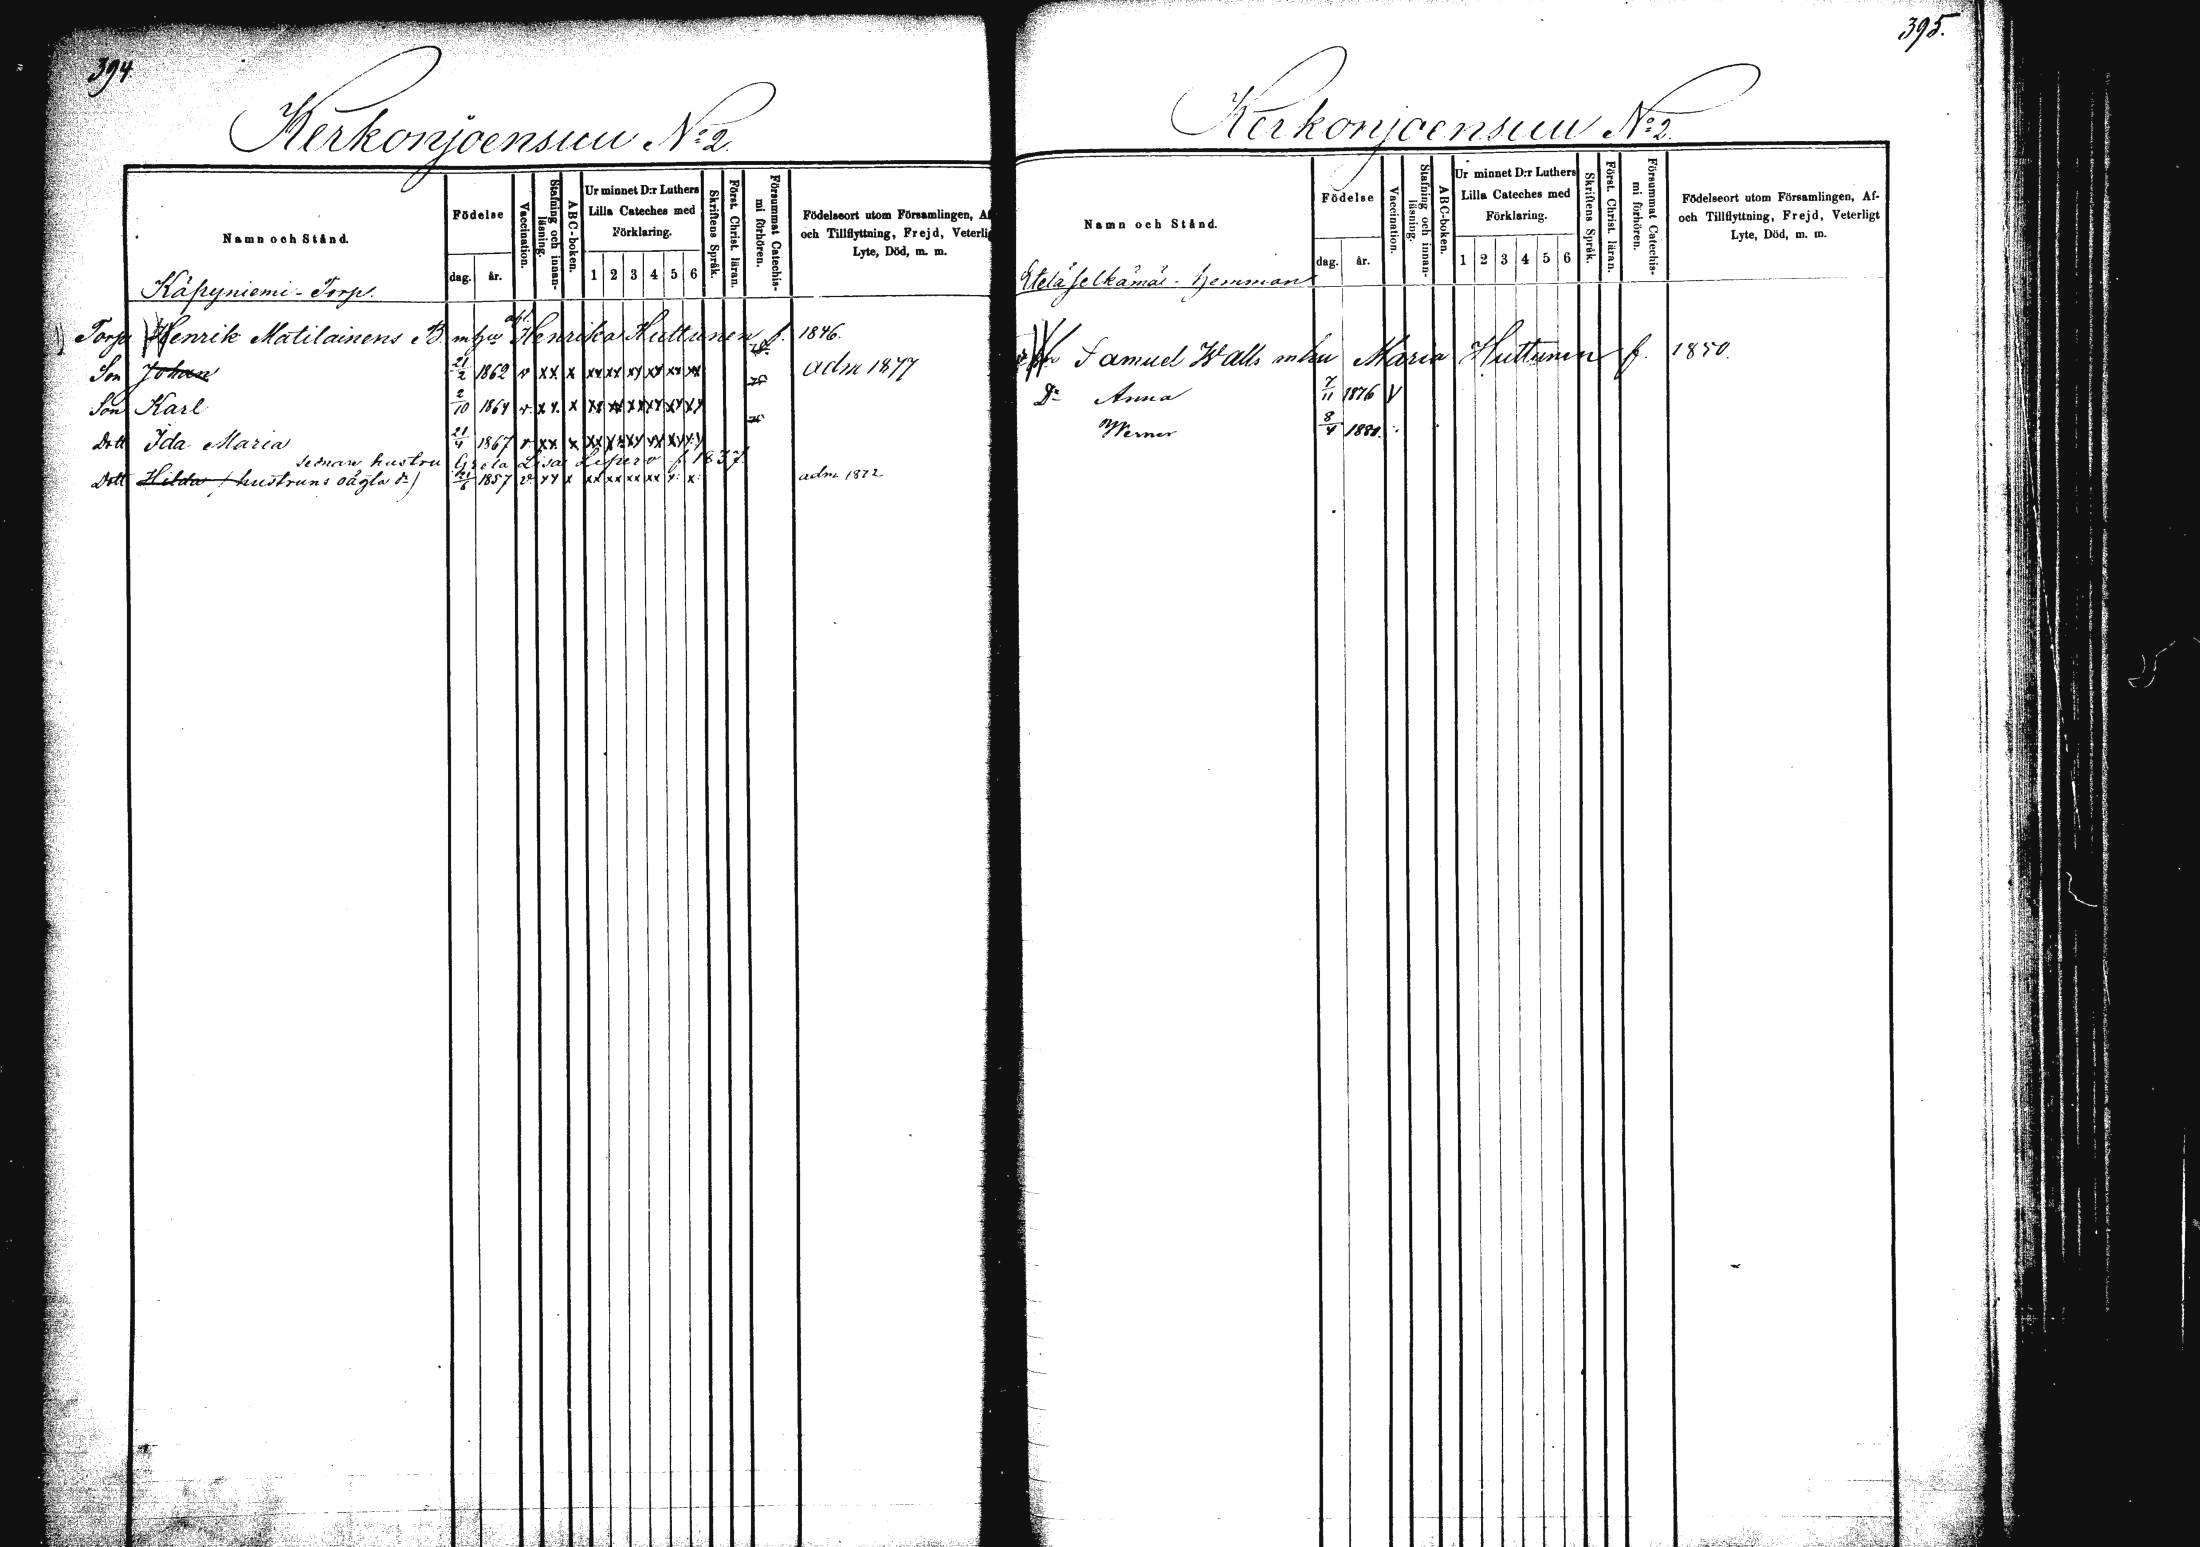 394.
Kerkonjoensuu No 2.
Namn och Stånd.
Födelse
dag.
år.
Vaccination.
Stafning och innan-
läsning.
ABC-boken.
Ur minnet D:r Luthers
Lilla Cateches med
Förklaring.
1 2 3 4 5 6
Skriftens Språk.
Först. Christ. läran.
Försummat Catechis-
mi förhören.
Födelseort utom Församlingen, Af
och Tillflyttning, Frejd, Veterlig
Lyte, Död, m. m.
Käpyniemi - Torp.
Torp Henrik Matilainens B mhu Henrika Huttunen f. 1846.
Son Johan 21/2 1862 v xx x xx xx xy xy xx xx adm 1877
Son Karl 2/10 1864 v x x. x xx xx xx xy xy xy
Dott Ida Maria 21/4 1867 v xx x xx xx xy xx xy xy
sednare hustru Greta Lisa Lipero f 1837.
Dott Hilda (hustruns oägta dr) 21/6 1857 v. xy x xx xx xx xx x: x: adm 1872
395.
Kerkonjoensuu No 2.
Namn och Stånd.
Födelse
dag.
år.
Vaccination.
Stafning och innan-
läsning.
ABC-boken.
Ur minnet D:r Luthers
Lilla Cateches med
Förklaring.
1 2 3 4 5 6
Skriftens Språk.
Först. Christ. läran.
Försummat Catechis-
mi förhören.
Födelseort utom Församlingen, Af-
och Tillflyttning, Frejd, Veterligt
Lyte, Död, m. m.
Eteläselkämäs - hemman
Samuel Walls mhu Maria Huttunen f. 1850.
Dr Anna 7/11 1876 v
Werner 8/4 1880.